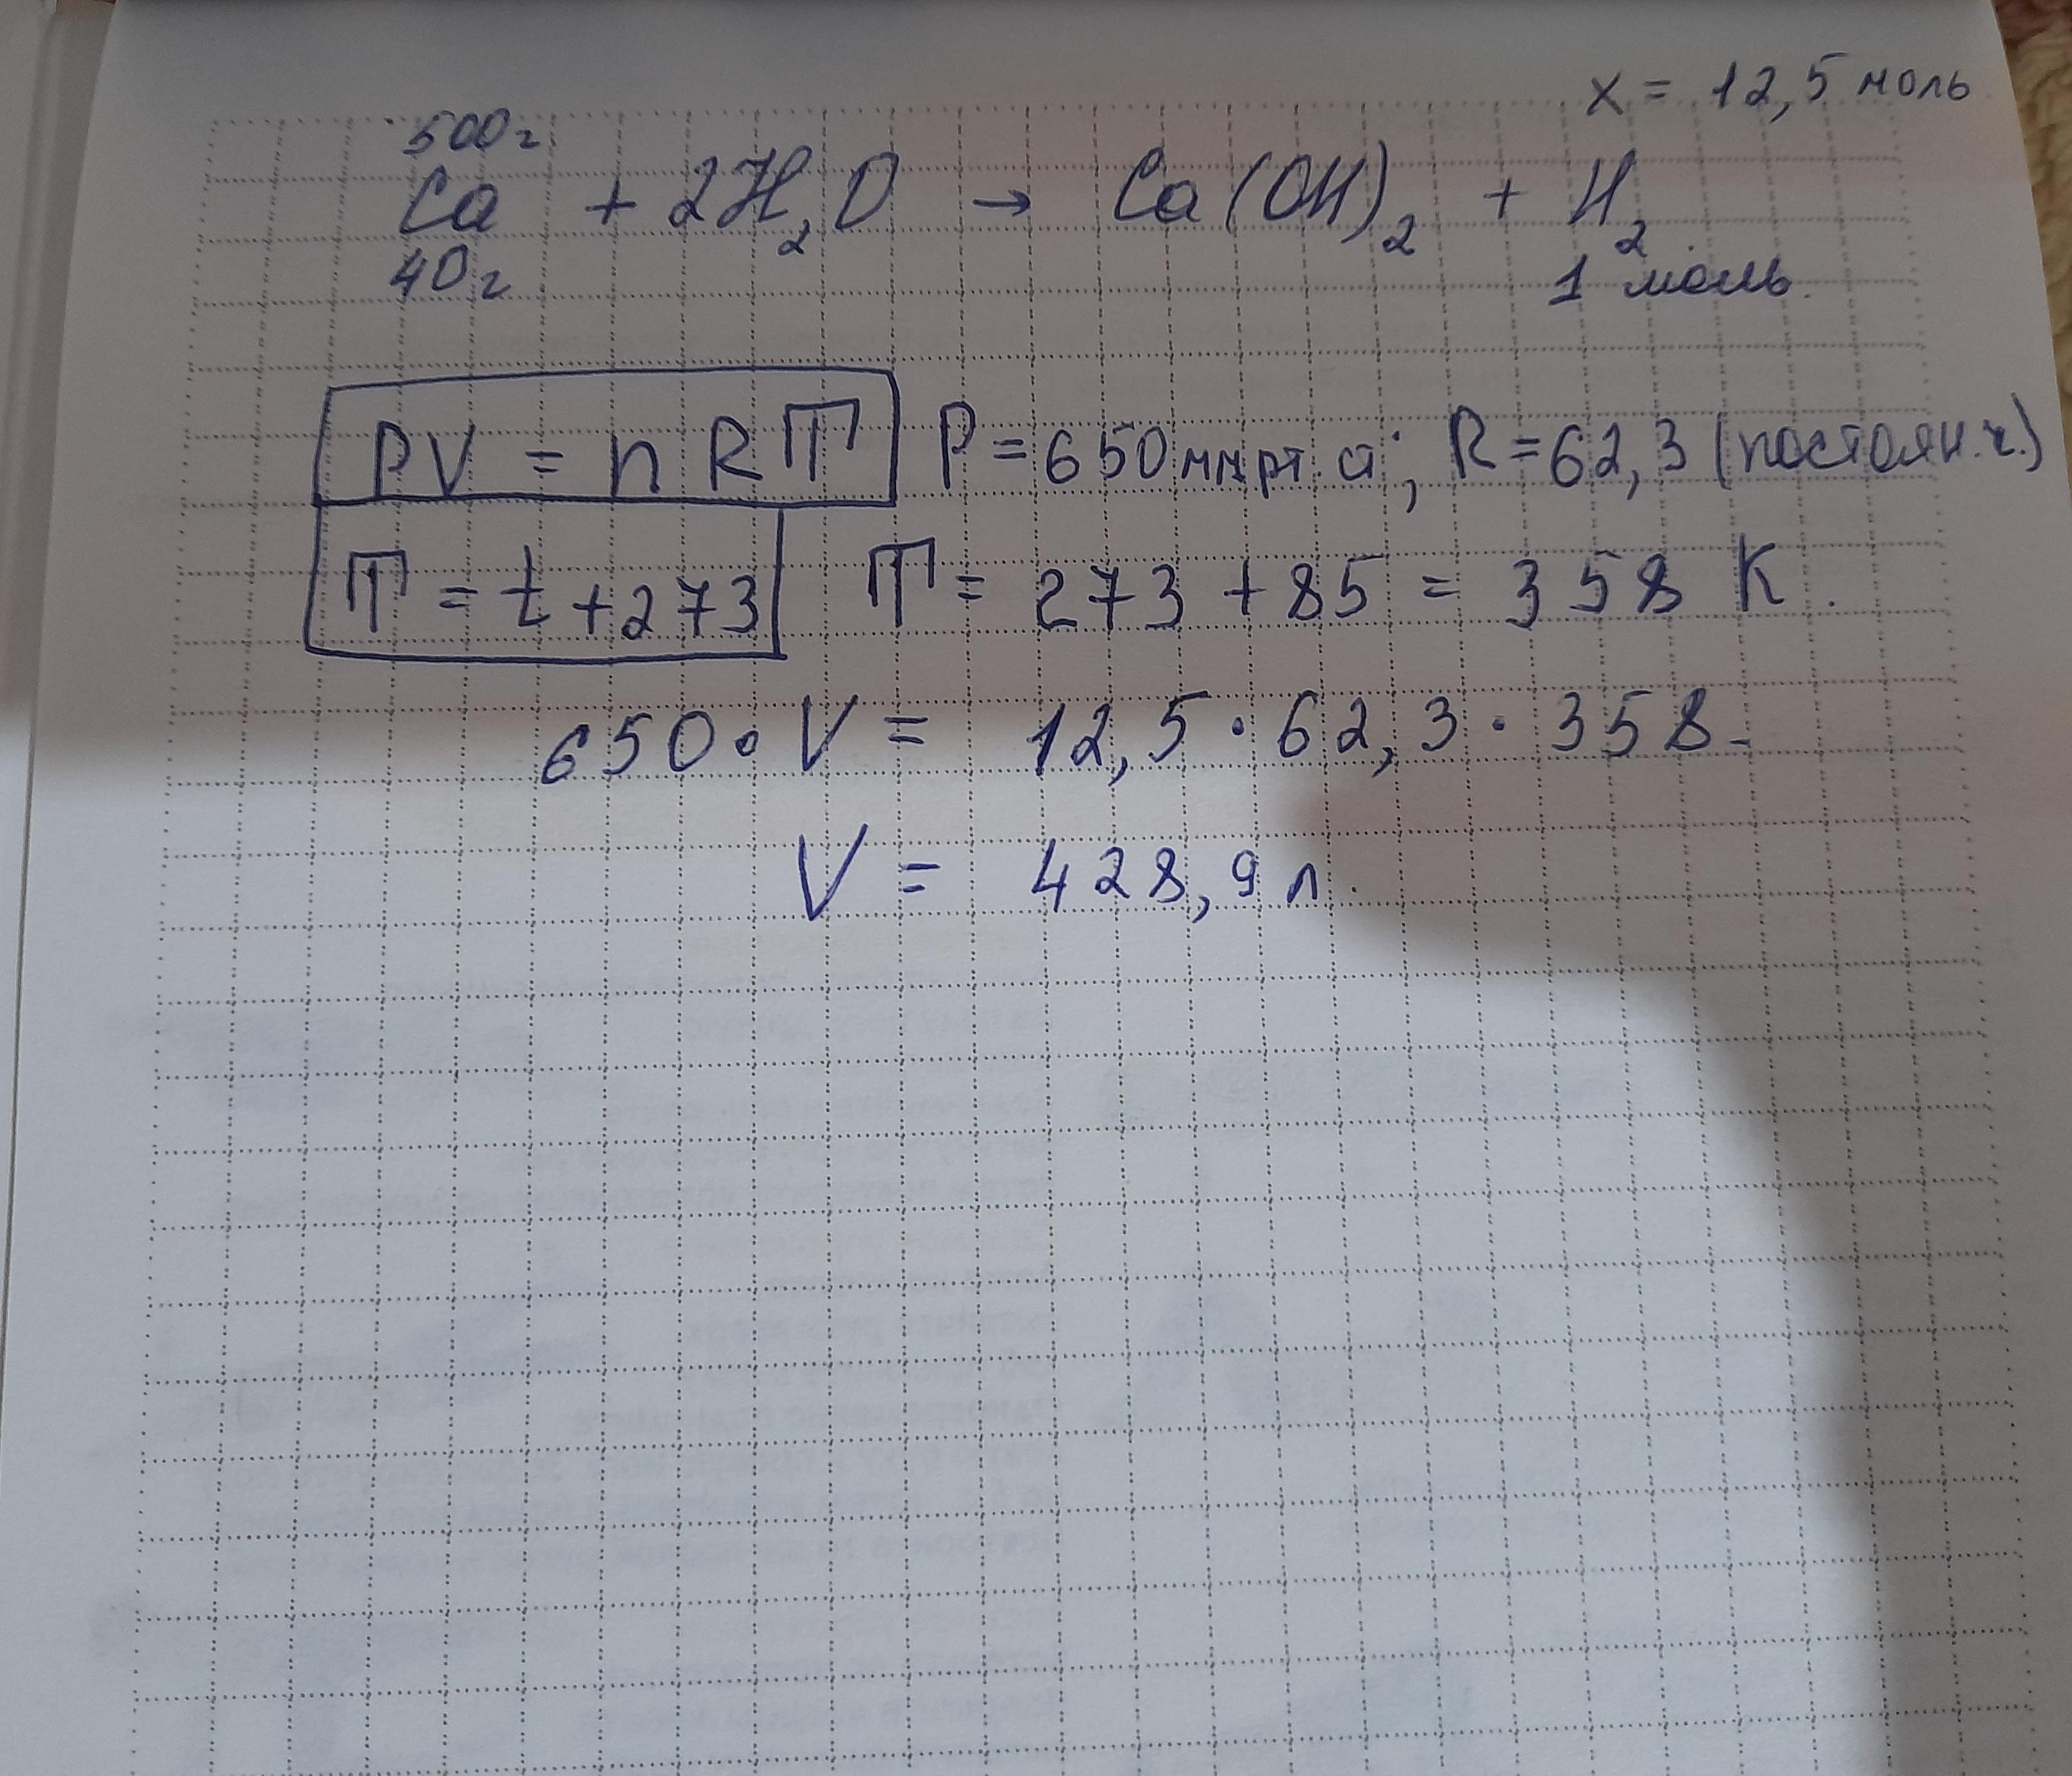 x = 12,5 моль
500г.
Ca + 2H₂O → Ca(OH)₂ + H₂
40г 1 моль.
PV = nRT P = 650 мм рт. ст.; R = 62,3 (постоян.ч.)
T = t + 273 T = 273 + 85 = 358 K.
650 · V = 12,5 · 62,3 · 358.
V = 428,9 л.